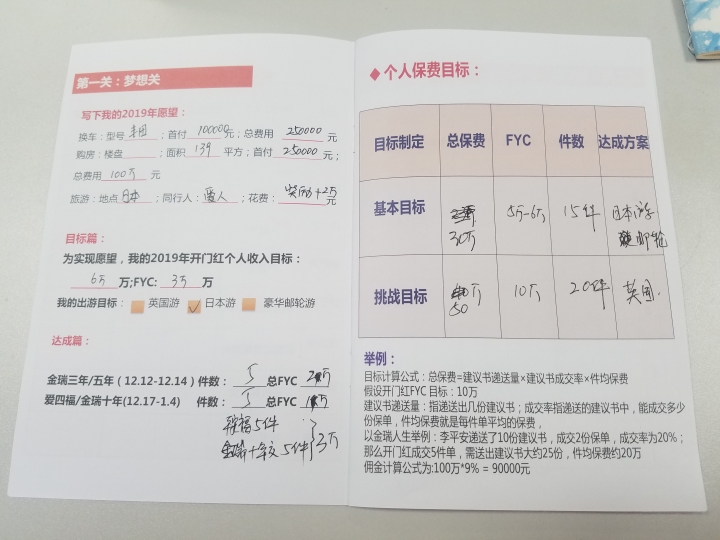 第一关：梦想关
写下我的2019年愿望：
换车：型号 ；首付 100000 元；总费用 250000 元
购房：楼盘 ；面积 139 平方；首付 250000 元；
总费用 100万 元
旅游：地点 日本 ；同行人： ；花费： 奖励+2万 元
目标篇：
为实现愿望，我的2019年开门红个人收入目标：
6万 万;FYC: 3万 万
我的出游目标： 英国游 ✓ 日本游 豪华邮轮游
达成篇：
金瑞三年/五年（12.12-12.14）件数： 5 总FYC
爱四福/金瑞十年(12.17-1.4) 件数： 5 总FYC
福5件
金瑞十年交 5件 } 3万
◆ 个人保费目标：
目标制定 总保费 FYC 件数 达成方案
基本目标 30万 5万-6万 15件 日本游 邮轮
挑战目标 50万 10万 20件 英国.
举例：
目标计算公式：总保费=建议书递送量×建议书成交率×件均保费
假设开门红FYC 目标：10万
建议书递送量：指递送出几份建议书；成交率指递送的建议书中，能成交多少
份保单，件均保费就是每件单平均的保费，
以金瑞人生举例：李平安递送了10份建议书，成交2份保单，成交率为20%；
那么开门红成交5件单，需送出建议书大约25份，件均保费约20万
佣金计算公式为:100万*9% = 90000元